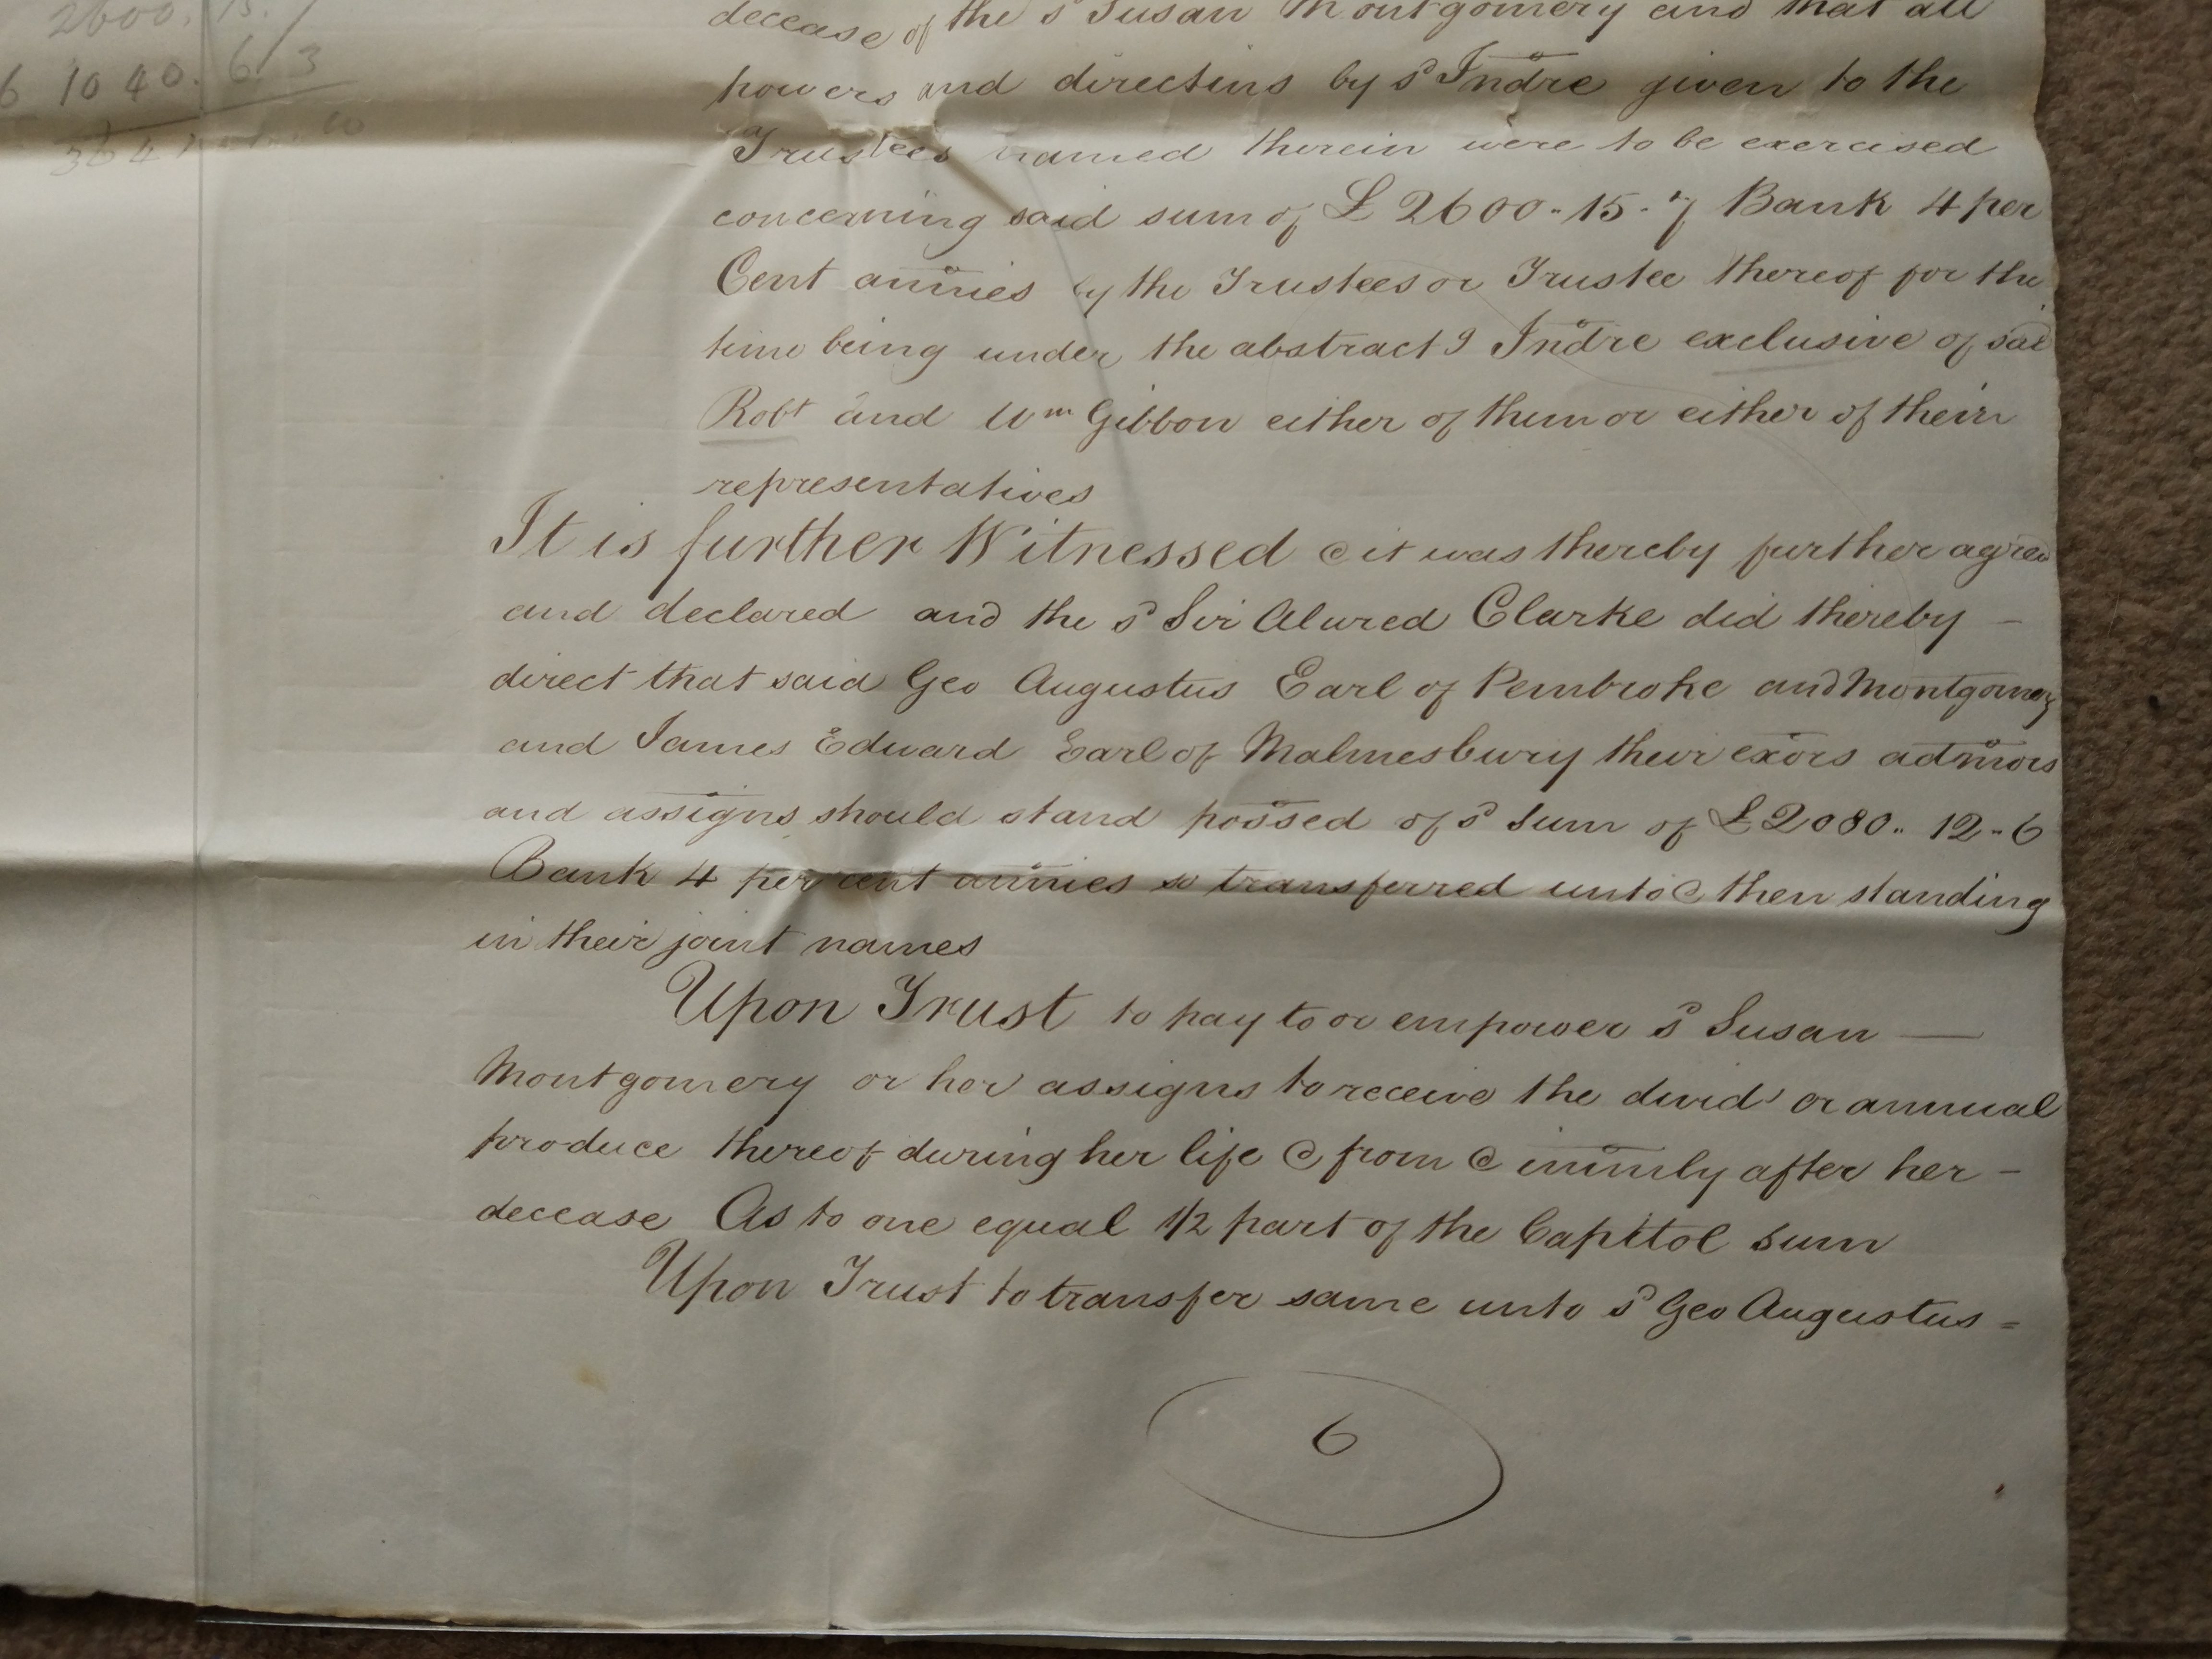 2600. 15. /
6 1040. 6. 3
decease of the sd Susan Montgomery and that all
powers and directins by sd Indre given to the
Trustees named therein were to be exercised
concerning said sum of £2600-15-7 Bank 4 per
Cent annies by the Trustees or Trustee thereof for the
time being under the abstract g Indre exclusive of said
Robt and Wm Gibbon either of them or either of their
representatives
It is further Witnessed & it was thereby further agreed
and declared and the sd Sir Alured Clarke did thereby –
direct that said Geo Augustus Earl of Pembroke and Montgomery
and James Edward Earl of Malmesbury their exors admors
and assigns should stand possed of sd Sum of £2080..12-6
Bank 4 per cent annies so transferred unto & then standing
in their joint names
Upon Trust to pay to or empower sd Susan —
Montgomery or her assigns to receive the divid' or annual
produce thereof during her life & from & immly after her –
decease As to one equal 1/2 part of the Capitol sum
Upon Trust to transfer same unto sd Geo Augustus =
6